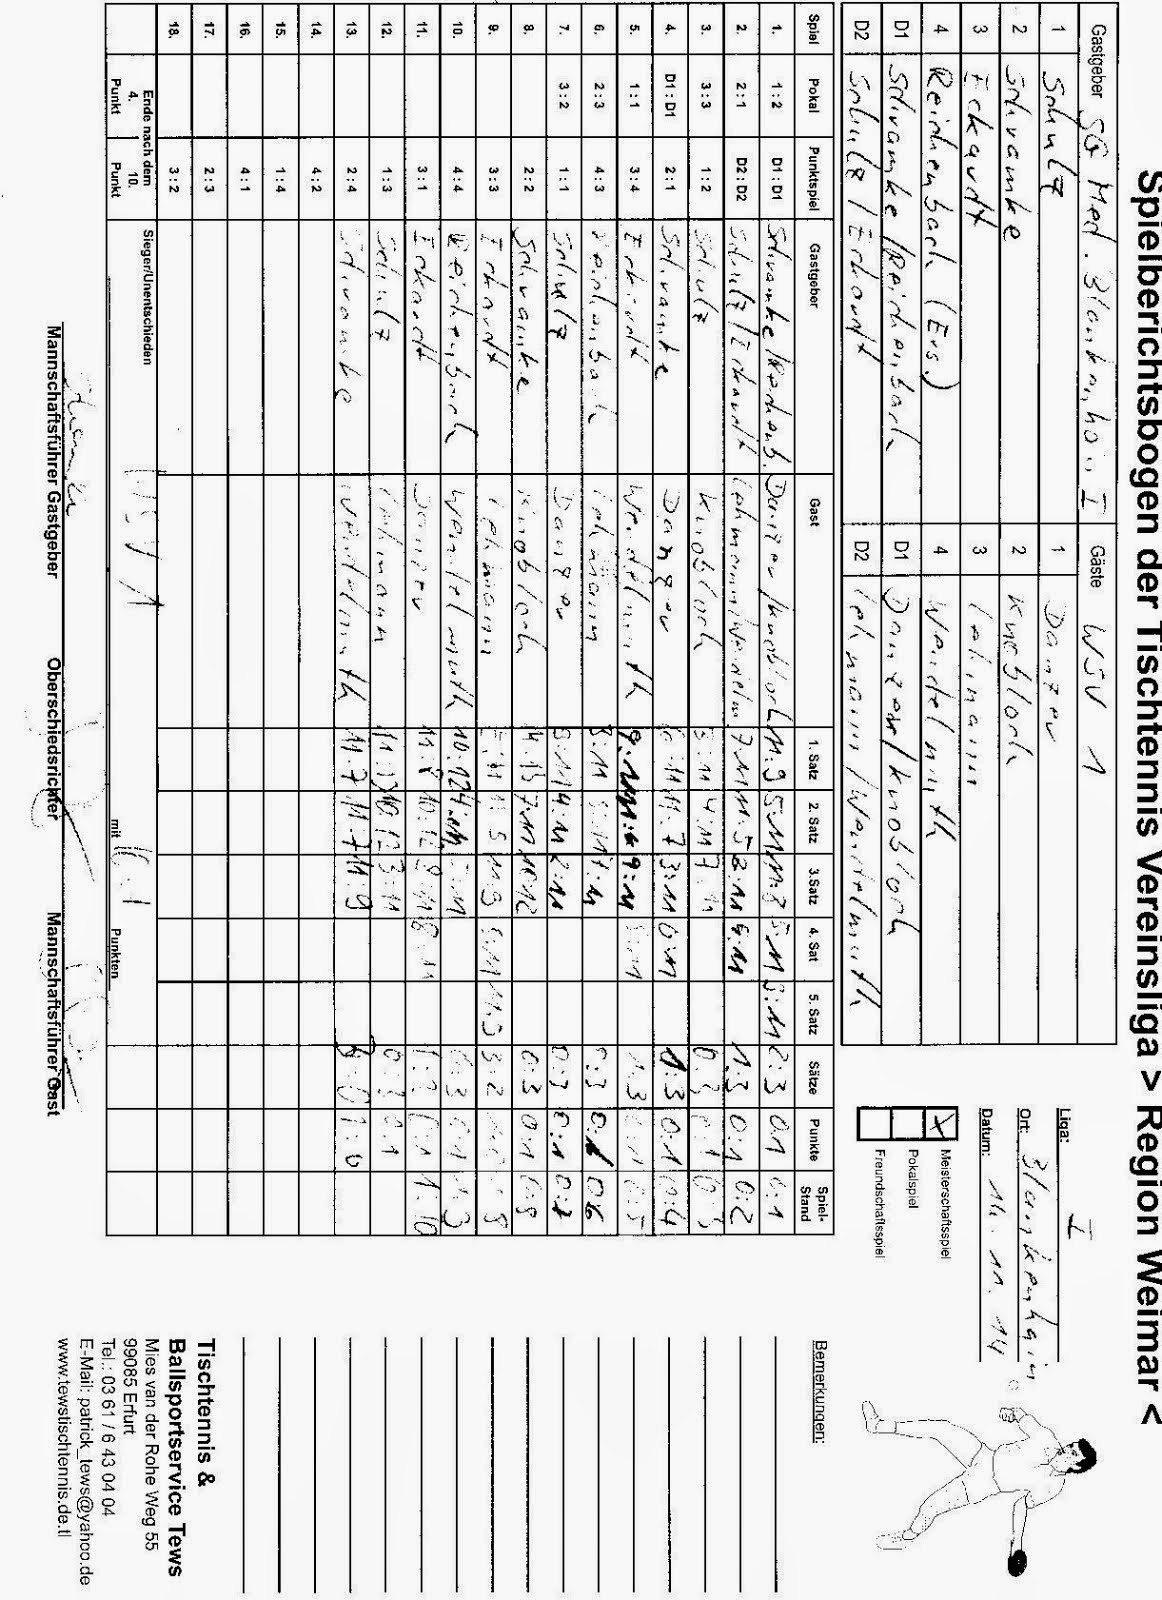 Spielberichtsbogen der Tischtennis Vereinsliga > Region Weimar <
Gastgeber SG Med. Blankenha.. I Gäste WSV 1
1 Schulz 1 Danzer
2 Schramke 2 Knobloch
3 Eckardt 3 Lehmann
4 Reichenbach (Ers.) 4 Wendelmuth
D1 Schramke/Reichenbach D1 Danzer/Knobloch
D2 Schulz/Eckardt D2 Lehmann/Wendelmuth
Liga: I
Ort: Blankenhain
Datum: 14.11.14
X Meisterschaftsspiel
Pokalspiel
Freundschaftsspiel
Spiel Pokal Punktspiel Gastgeber Gast 1. Satz 2. Satz 3.Satz 4. Sat 5. Satz Sätze Punkte Spiel-Stand
1. 1 : 2 D1 : D1 Schramke/Reichenb. Danzer/Knobloch 11:9 5:11 11:8 5:11 9:11 2:3 0:1 0:1
2. 2 : 1 D2 : D2 Schulz/Eckardt Lehmann/Wendelm 7:11 11:5 8:11 9:11 1:3 0:1 0:2
3. 3 : 3 1 : 2 Schulz Knobloch 4:11 7:11 0:3 0:1 0:3
4. D1 : D1 2 : 1 Schramke Danzer 6:11 11:7 3:11 6:11 1:3 0:1 0:4
5. 1 : 1 3 : 4 Eckardt Wendelmuth 9:11 9:11 1:3 0:1 0:5
6. 2 : 3 4 : 3 Reichenbach Lehmann 0:3 0:1 0:6
7. 3 : 2 1 : 1 Schulz Danzer 4:11 2:11 0:3 0:1 0:7
8. 2 : 2 Schramke Knobloch 7:11 10:12 0:3 0:1 0:8
9. 3 : 3 Eckardt Lehmann 11:9 3:2
10. 4 : 4 Reichenbach Wendelmuth 10:12 4:11 0:3 0:1
11. 3 : 1 Eckardt Danzer 11:8 10:12 9:11 8:11 1:3 0:1 1:10
12. 1 : 3 Schulz Lehmann 10:12 3:11 0:3 0:1
13. 2 : 4 Schramke Wendelmuth 11:7 11:7 11:9 3:0 1:0
14. 4 : 2
15. 1 : 4
16. 4 : 1
17. 2 : 3
18. 3 : 2
Ende nach dem
4. Punkt 10. Punkt
Sieger/Unentschieden WSV 1 mit Punkten
Mannschaftsführer Gastgeber Oberschiedsrichter Mannschaftsführer Gast
Bemerkungen:
Tischtennis &
Ballsportservice Tews
Mies van der Rohe Weg 55
99085 Erfurt
Tel.: 03 61 / 6 43 04 04
E-Mail: patrick_tews@yahoo.de
www.tewstischtennis.de.tl